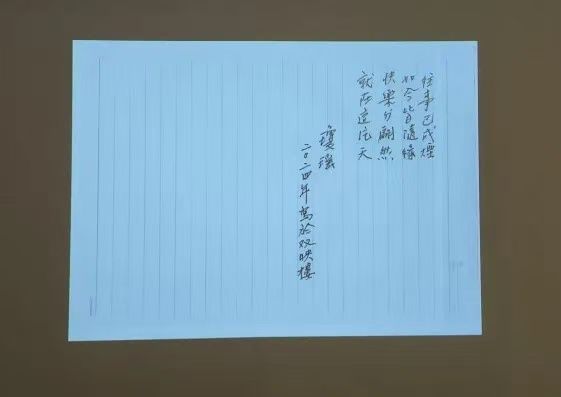 往事已成煙
如今皆隨緣
快樂与翩然
就在這天
瓊瑤
二〇二四年寫於双映樓